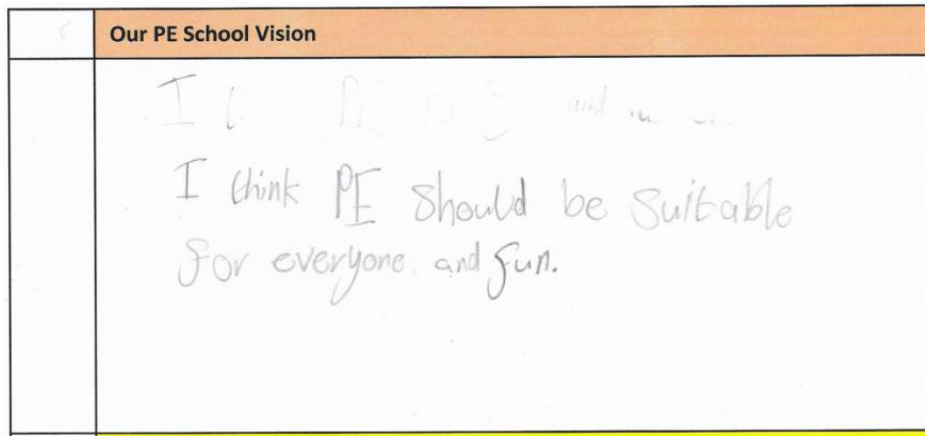 Our PE School Vision
I PE and
I think PE should be suitable
for everyone and fun.